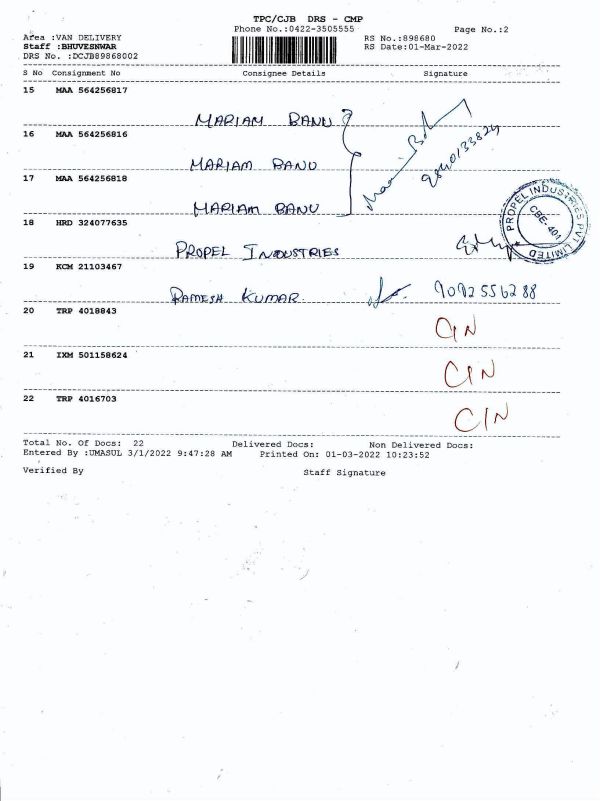 TPC/CJB DRS - CMP
Phone No.:0422-3505555 Page No.:2
Area :VAN DELIVERY RS No.:898680
Staff :BHUVESNWAR RS Date:01-Mar-2022
DRS No. :DCJB89868002
S No Consignment No Consignee Details Signature
15 MAA 564256817
MARIAM BANU
16 MAA 564256816
MARIAM BANU
9840133824
17 MAA 564256818
MARIAM BANU
18 HRD 324077635
PROPEL INDUSTRIES
PROPEL INDUSTRIES PVT LIMITED
CBE-401
19 KCM 21103467
RAMESH KUMAR 9092556288
20 TRP 4018843
CIN
21 IXM 501158624
CIN
22 TRP 4016703
CIN
Total No. Of Docs: 22 Delivered Docs: Non Delivered Docs:
Entered By :UMASUL 3/1/2022 9:47:28 AM Printed On: 01-03-2022 10:23:52
Verified By Staff Signature